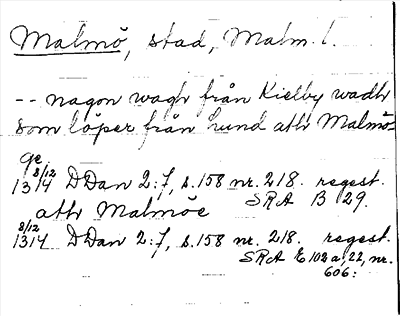 Malmö, stad, Malm. l.
-- nagon wagh från Kielby wadh
som löper från Lund ath Malmö-
ge
8/12 1314 DDan 2:7, s. 158 nr. 218. regest.
SRA B 29.
ath Malmöe
8/12 1314 DDan 2:7, s. 158 nr. 218. regest.
SRA E 102 a, 22, nr.
606: